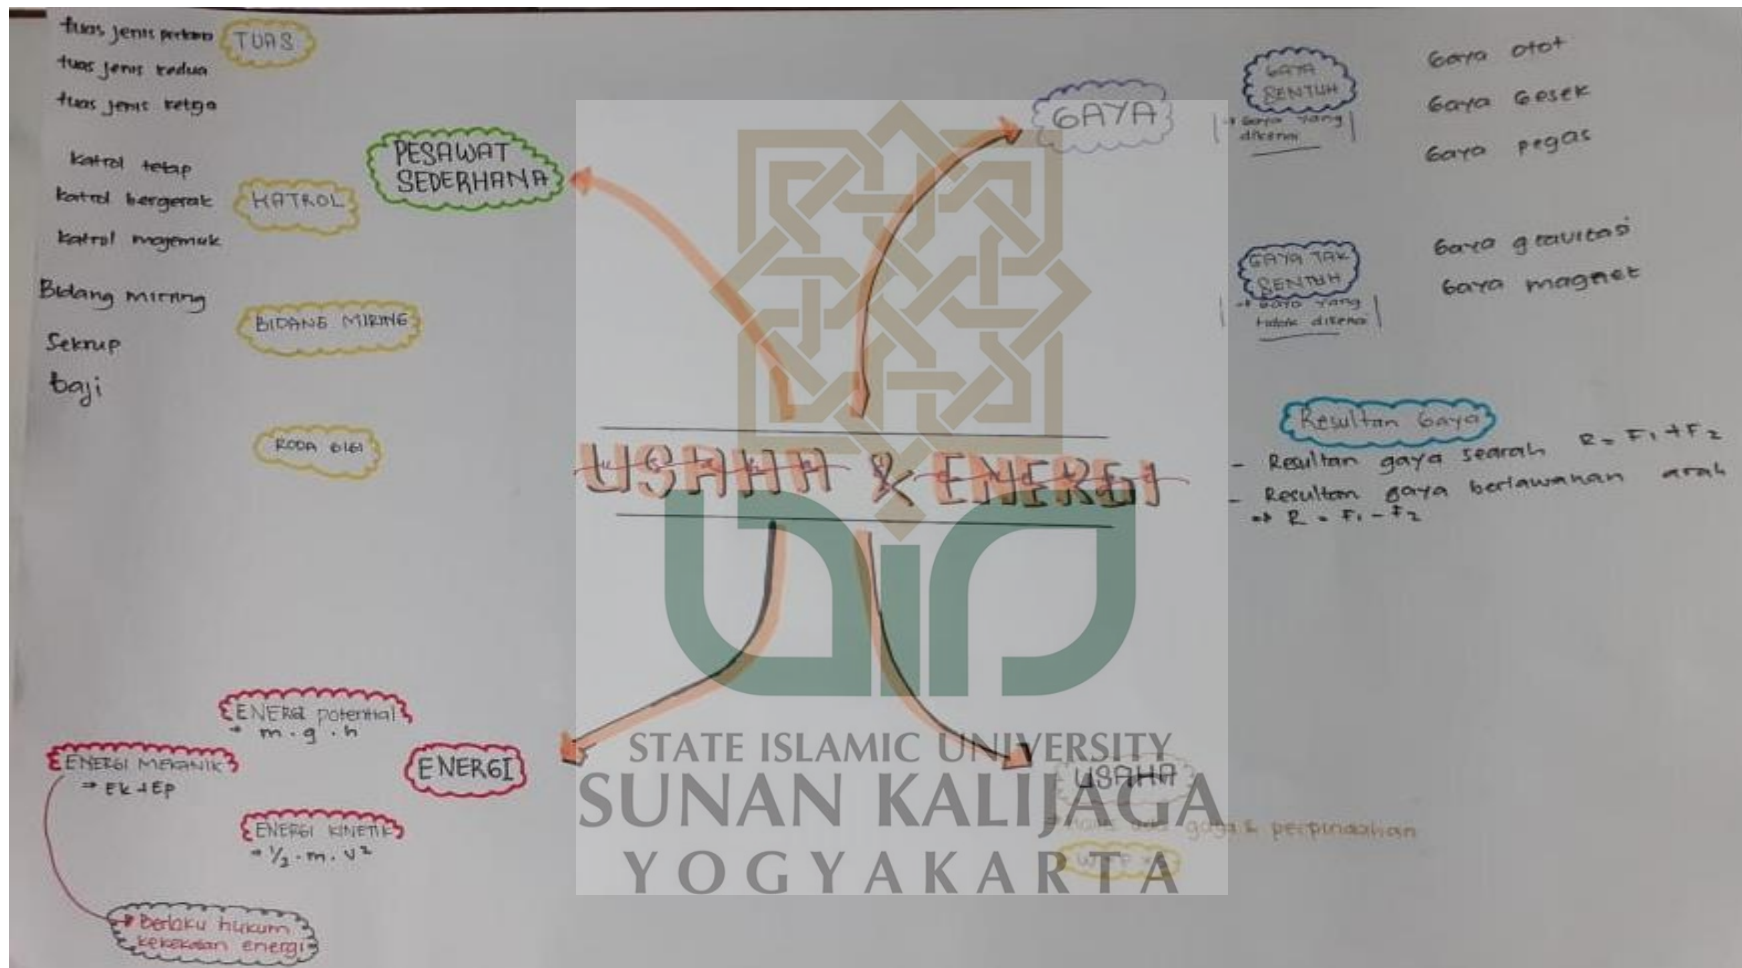 tuas jenis pertama
TUAS
tuas jenis kedua
tuas jenis ketiga
PESAWAT
SEDERHANA
katrol tetap
katrol bergerak
KATROL
katrol majemuk
Bidang miring
BIDANG MIRING
Sekrup
baji
RODA GIGI
GAYA
GAYA
SENTUH
→ Gaya yang
dikenai
Gaya otot
Gaya Gesek
Gaya pegas
GAYA TAK
SENTUH
→ Gaya yang
tidak dikenai
Gaya gravitasi
Gaya magnet
Resultan Gaya
- Resultan gaya searah R = F1 + F2
- Resultan gaya berlawanan arah
⇒ R = F1 - F2
USAHA & ENERGI
ENERGI potential
→ m . g . h
ENERGI MEKANIK
→ Ek + Ep
ENERGI
ENERGI KINETIK
→ 1/2 . m . v²
Berlaku hukum
kekekalan energi
USAHA
gaya & perpindahan
STATE ISLAMIC UNIVERSITY
SUNAN KALIJAGA
YOGYAKARTA